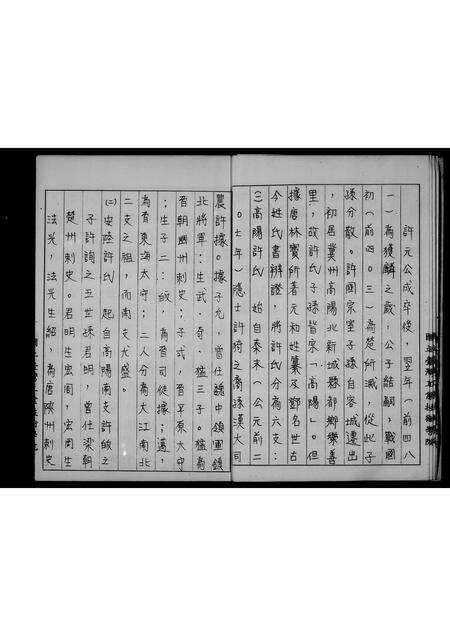 許元公成卒後，翌年（前四八
一）為獲麟之歲，公子結嗣，戰國
初（前四０三）為楚所滅，從此子
孫分散。許國宗室子孫自容城遷出
，初居冀州高陽北新城縣都鄉樂善
里，故許氏子孫皆宗「高陽」。但
據唐林寶所著元和姓纂及鄧名世古
今姓氏書辨證，將許氏分為六支：
㈠高陽許氏　始自秦末（公元前二
０七年）隱士許猗之裔孫漢大司
農許據。據子允，曾仕魏中領軍鎮
北將軍；生武、奇、猛三子。猛為
晉朝幽州刺史；子式，晉平原大守
；生子二：皈，為晉司徒掾；邁，
為晉東海太守；二人分為大江南北
二支之祖，而南支尤盛。
㈡安陸許氏　起自高陽南支許皈之
子許詢之五世孫君明，曾仕梁朝
楚州刺史。君明生宏周，宏周生
法光，法光生紹，為唐陝州刺史